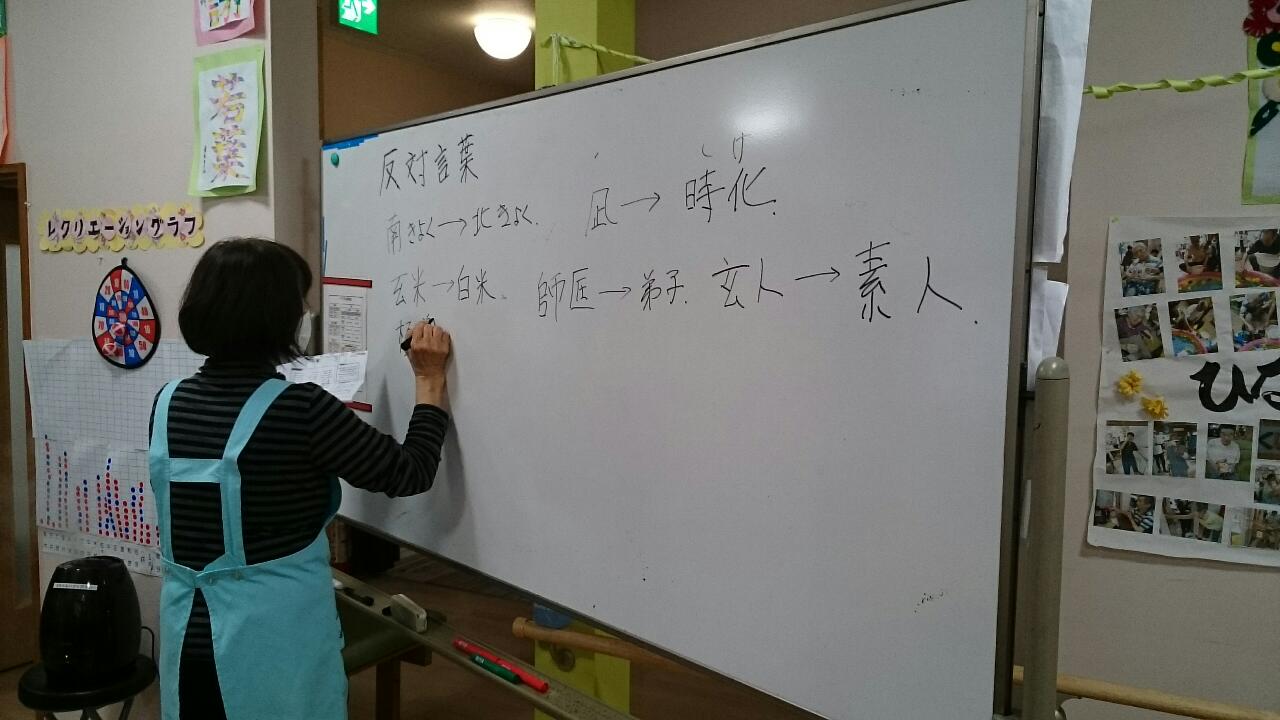 若葉
レクリエーショングラフ
反対言葉
南きょく→北きょく.
凪→時化.
しけ
玄米→白米.
師匠→弟子.
玄人→素人.